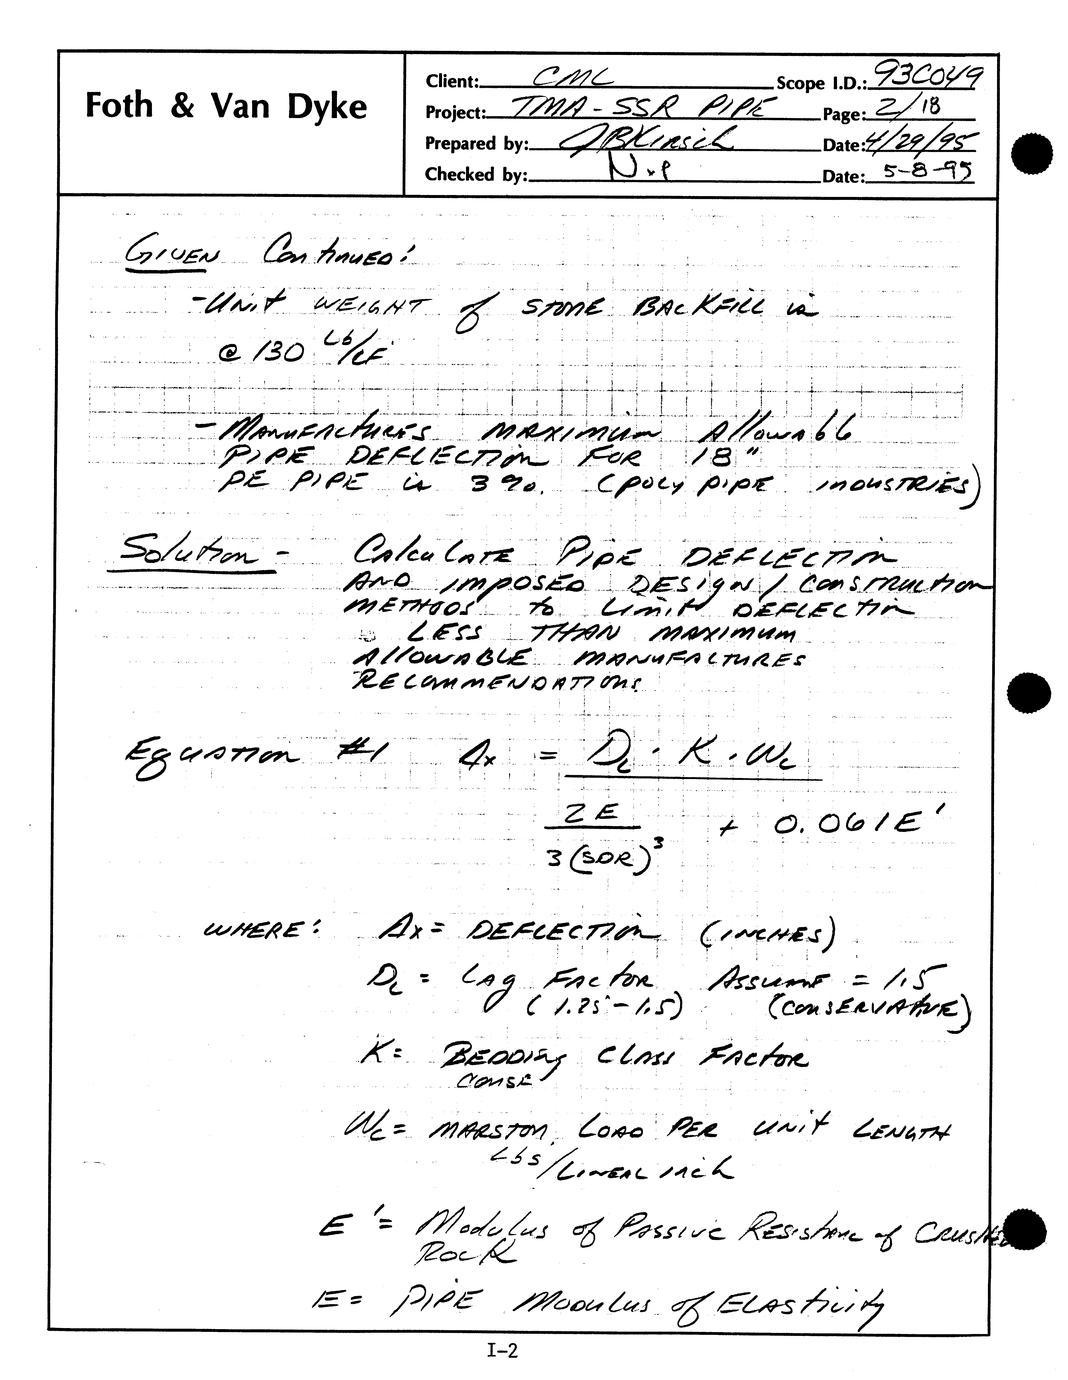 Foth & Van Dyke
Client: CMC Scope I.D.: 93C049
Project: TMA-SSR PIPE Page: 2/18
Prepared by: JBKirsch Date: 4/29/95
Checked by: N.P Date: 5-8-95
GIVEN Continued:
-Unit WEIGHT of STONE BACKFILL is
@ 130 Lb/CF
- MANUFACTURES MAXIMUM Allowable
PIPE DEFLECTION FOR 18"
PE PIPE is 3%. (POLY PIPE INDUSTRIES)
Solution - CALCULATE PIPE DEFLECTION
AND IMPOSED DESIGN/CONSTRUCTION
METHODS to Limit DEFLECTION
LESS THAN MAXIMUM
ALLOWABLE MANUFACTURES
RECOMMENDATIONS
Equation #1 Δx = DL · K · Wc
2E
3(SDR)³ + 0.061E'
WHERE: Δx = DEFLECTION (INCHES)
DL = LAG FACTOR ASSUME = 1.5
(1.25-1.5) (CONSERVATIVE)
K = BEDDING CLASS FACTOR
CONSE
Wc = MARSTON LOAD PER UNIT LENGTH
Lbs/LINEAL INCH
E' = Modulus of PASSIVE RESISTANC of CRUSHED
ROCK
E = PIPE Modulus of ELASTICITY
I-2